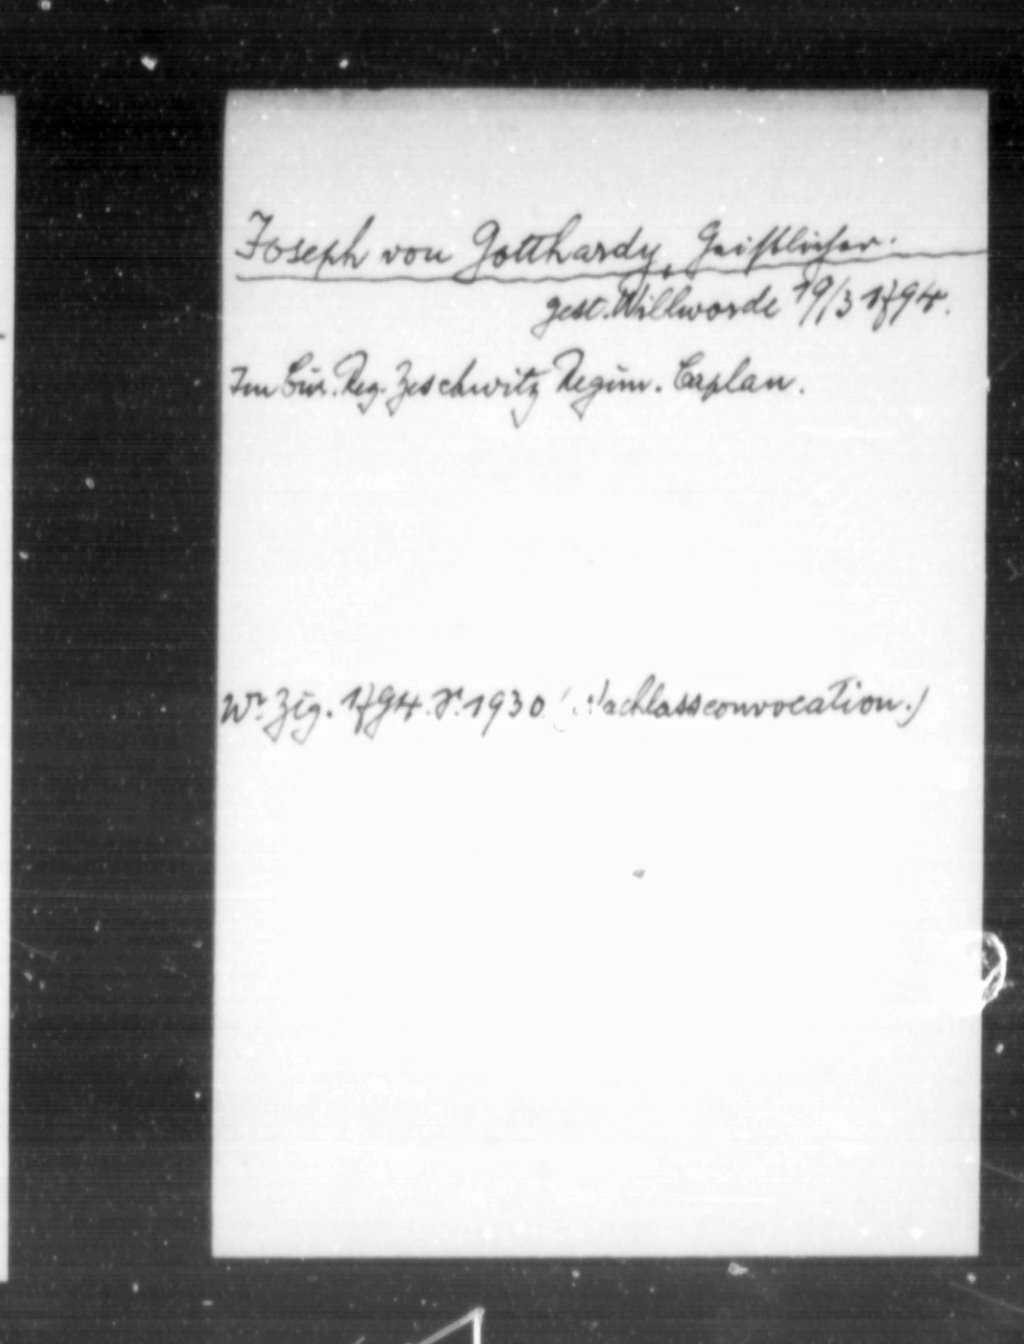 Joseph von Gotthardy, Geistlicher.
gest. Willworde 19/3 1794.
Im Cür. Reg. Zeschwitz Regim. Caplan.
Wr. Ztg. 1794. S. 1930 (Nachlassconvocation.)